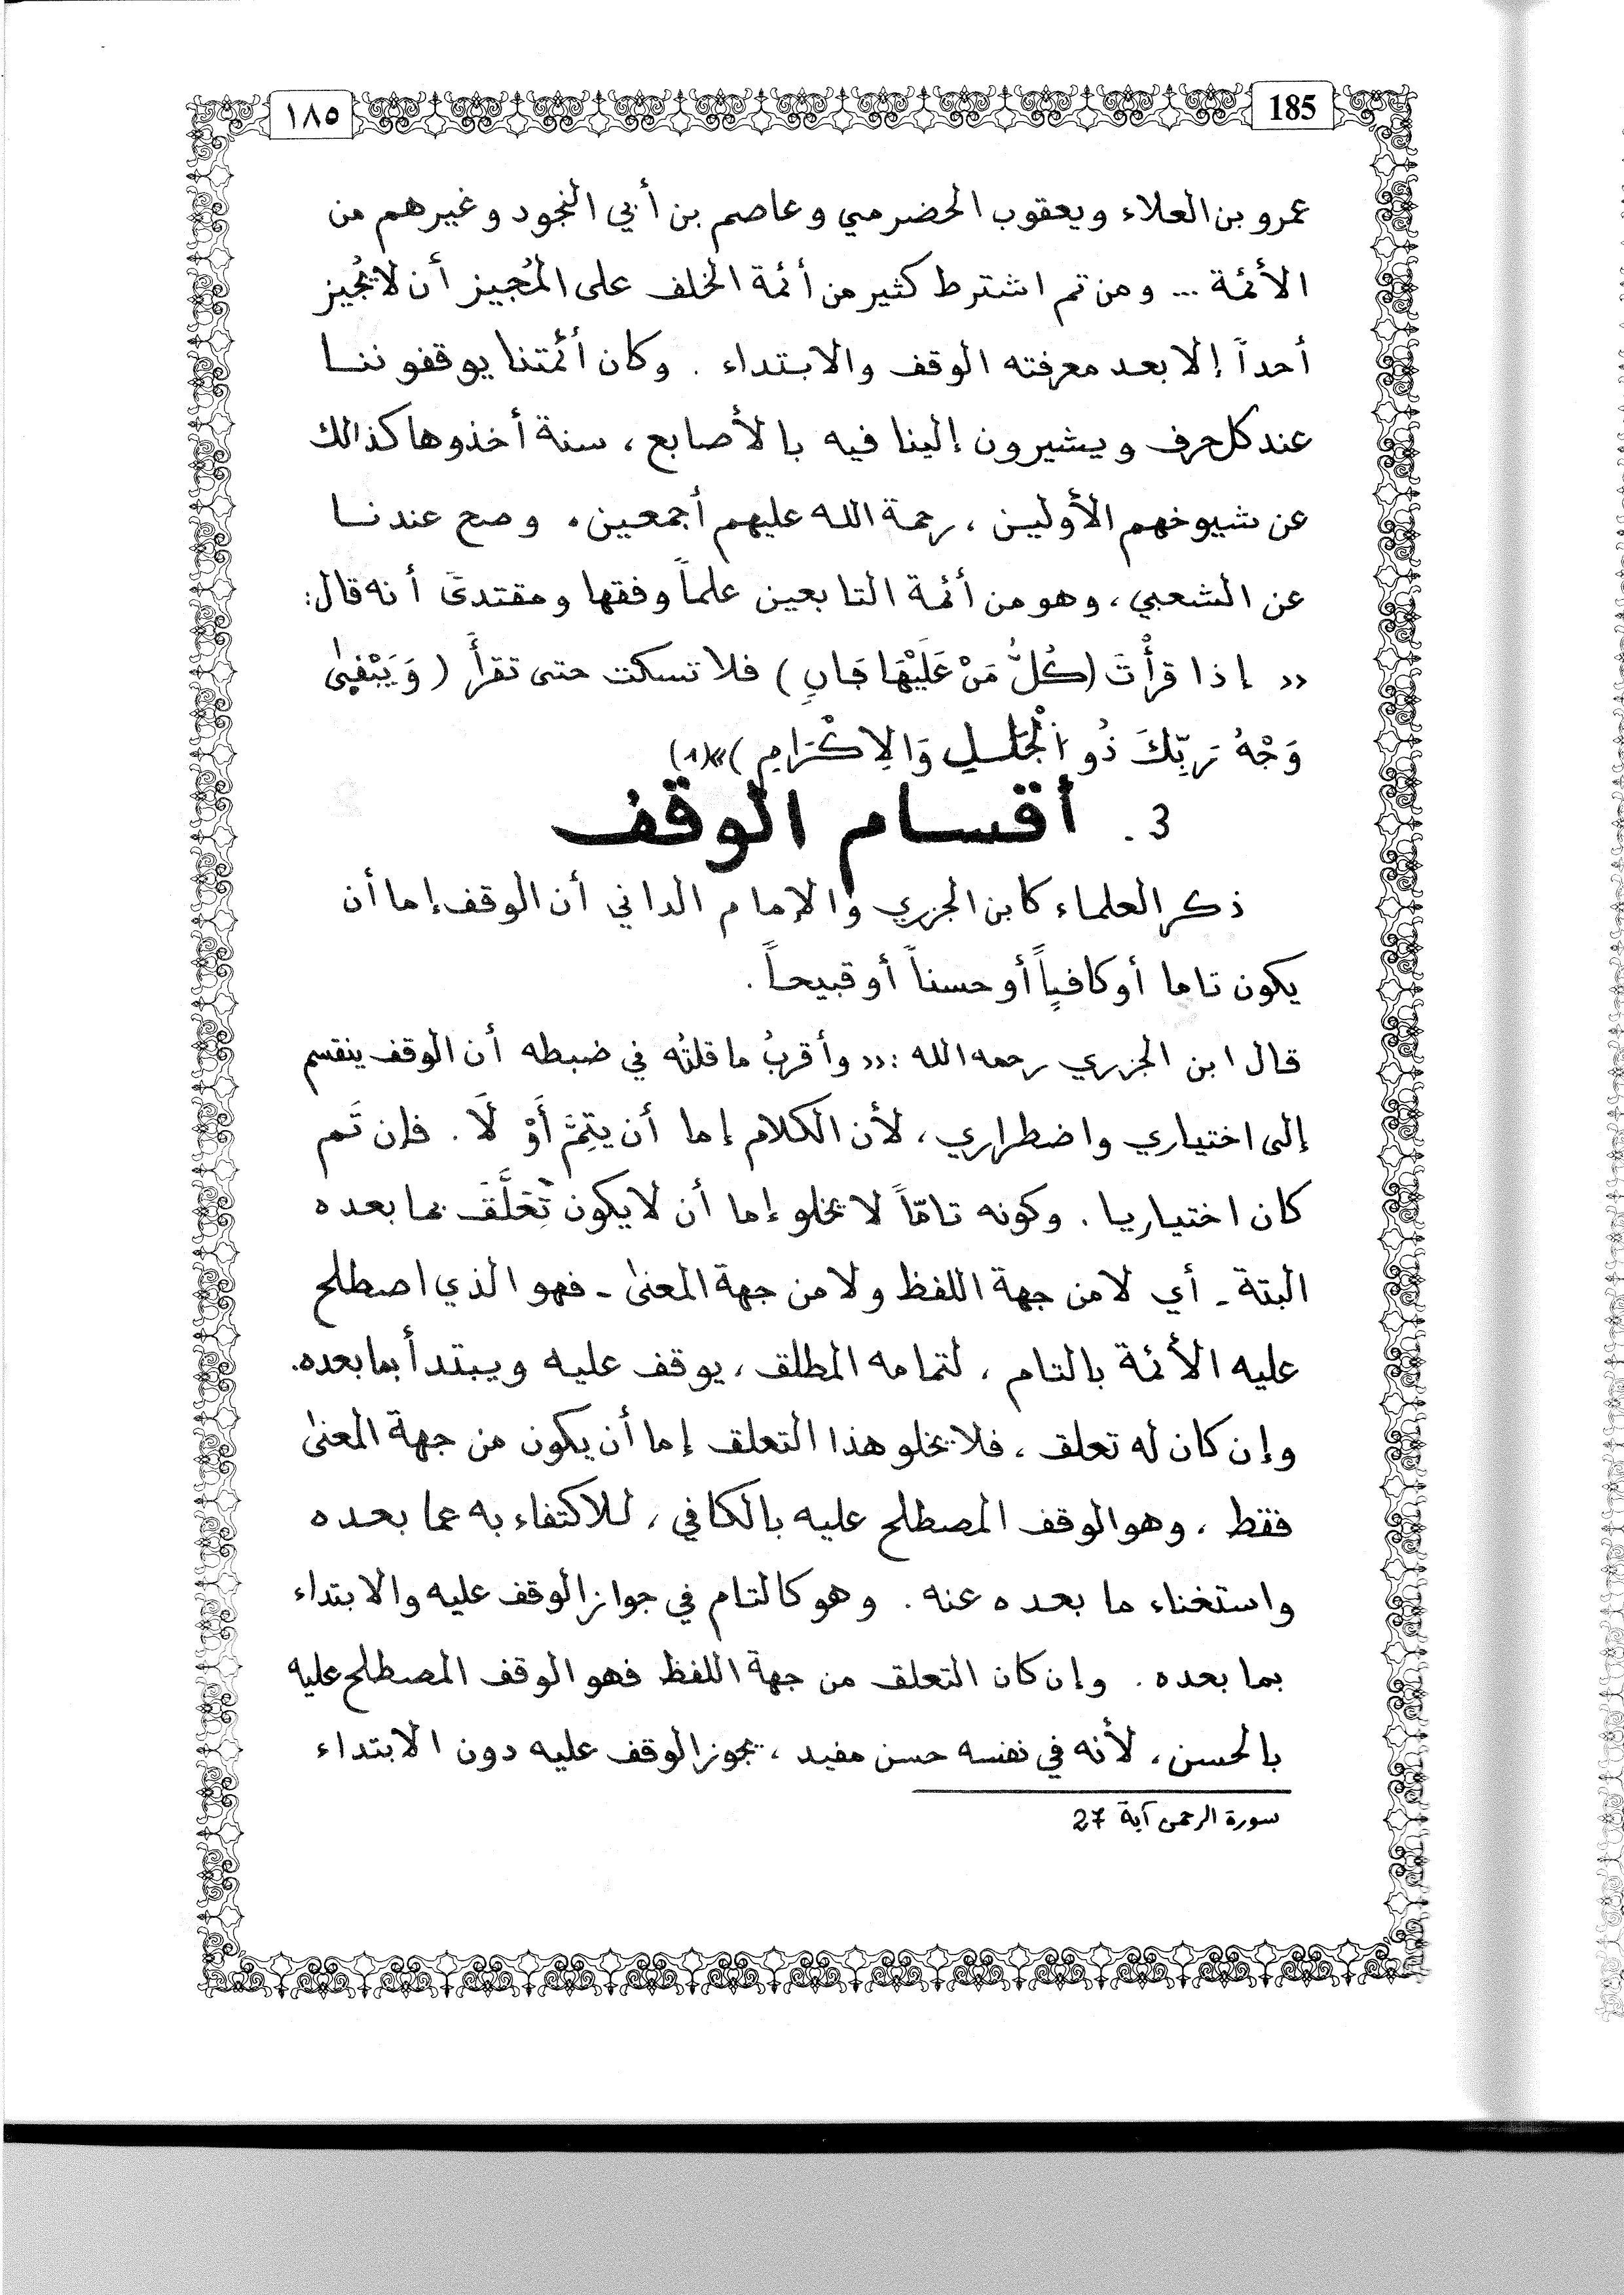 185 ١٨٥
عمرو بن العلاء ويعقوب الحضرمي وعاصم بن أبي النجود وغيرهم من
الأئمة ... ومن تم اشترط كثير من أئمة الخلف على المُجيز أن لا يُجيز
أحداً إلا بعد معرفته الوقف والابتداء . وكان أئمتنا يوقفوننا
عند كل حرف ويشيرون إلينا فيه بالأصابع ، سنة أخذوها كذالك
عن شيوخهم الأولين ، رحمة الله عليهم أجمعين . وصح عندنا
عن الشعبي ، وهو من أئمة التابعين علماً وفقها ومقتدىً أنه قال :
« إذا قرأْتَ (كُلُّ مَنْ عَلَيْهَا فَانٍ) فلا تسكت حتى تقرأَ (وَيَبْقىٰ
وَجْهُ رَبِّكَ ذُو اْلْجَلَـلِ وَالِاكْرَامِ)»(١)
3. أقسام الوقف
ذكر العلماء كابن الجزري والإمام الداني أن الوقف إما أن
يكون تاما أو كافياً أو حسناً أو قبيحاً .
قال ابن الجزري رحمه الله : « وأقربُ ما قلتُه في ضبطه أن الوقف ينقسم
إلى اختياري واضطراري ، لأن الكلام إما أن يتِمَّ أَوْ لَا . فإن تَم
كان اختياريا . وكونه تامّاً لا يخلو إما أن لا يكون تَعَلَّقَ بما بعده
البتة - أي لا من جهة اللفظ ولا من جهة المعنىٰ - فهو الذي اصطلح
عليه الأئمة بالتام ، لتمامه المطلق ، يوقف عليه ويبتدأ بما بعده .
وإن كان له تعلق ، فلا يخلو هذا التعلق إما أن يكون من جهة المعنىٰ
فقط ، وهو الوقف المصطلح عليه بالكافي ، للاكتفاء به عما بعده
واستغناء ما بعده عنه . وهو كالتام في جواز الوقف عليه والابتداء
بما بعده . وإن كان التعلق من جهة اللفظ فهو الوقف المصطلح عليه
بالحسن ، لأنه في نفسه حسن مفيد ، يجوز الوقف عليه دون الابتداء
سورة الرحمن آية 27